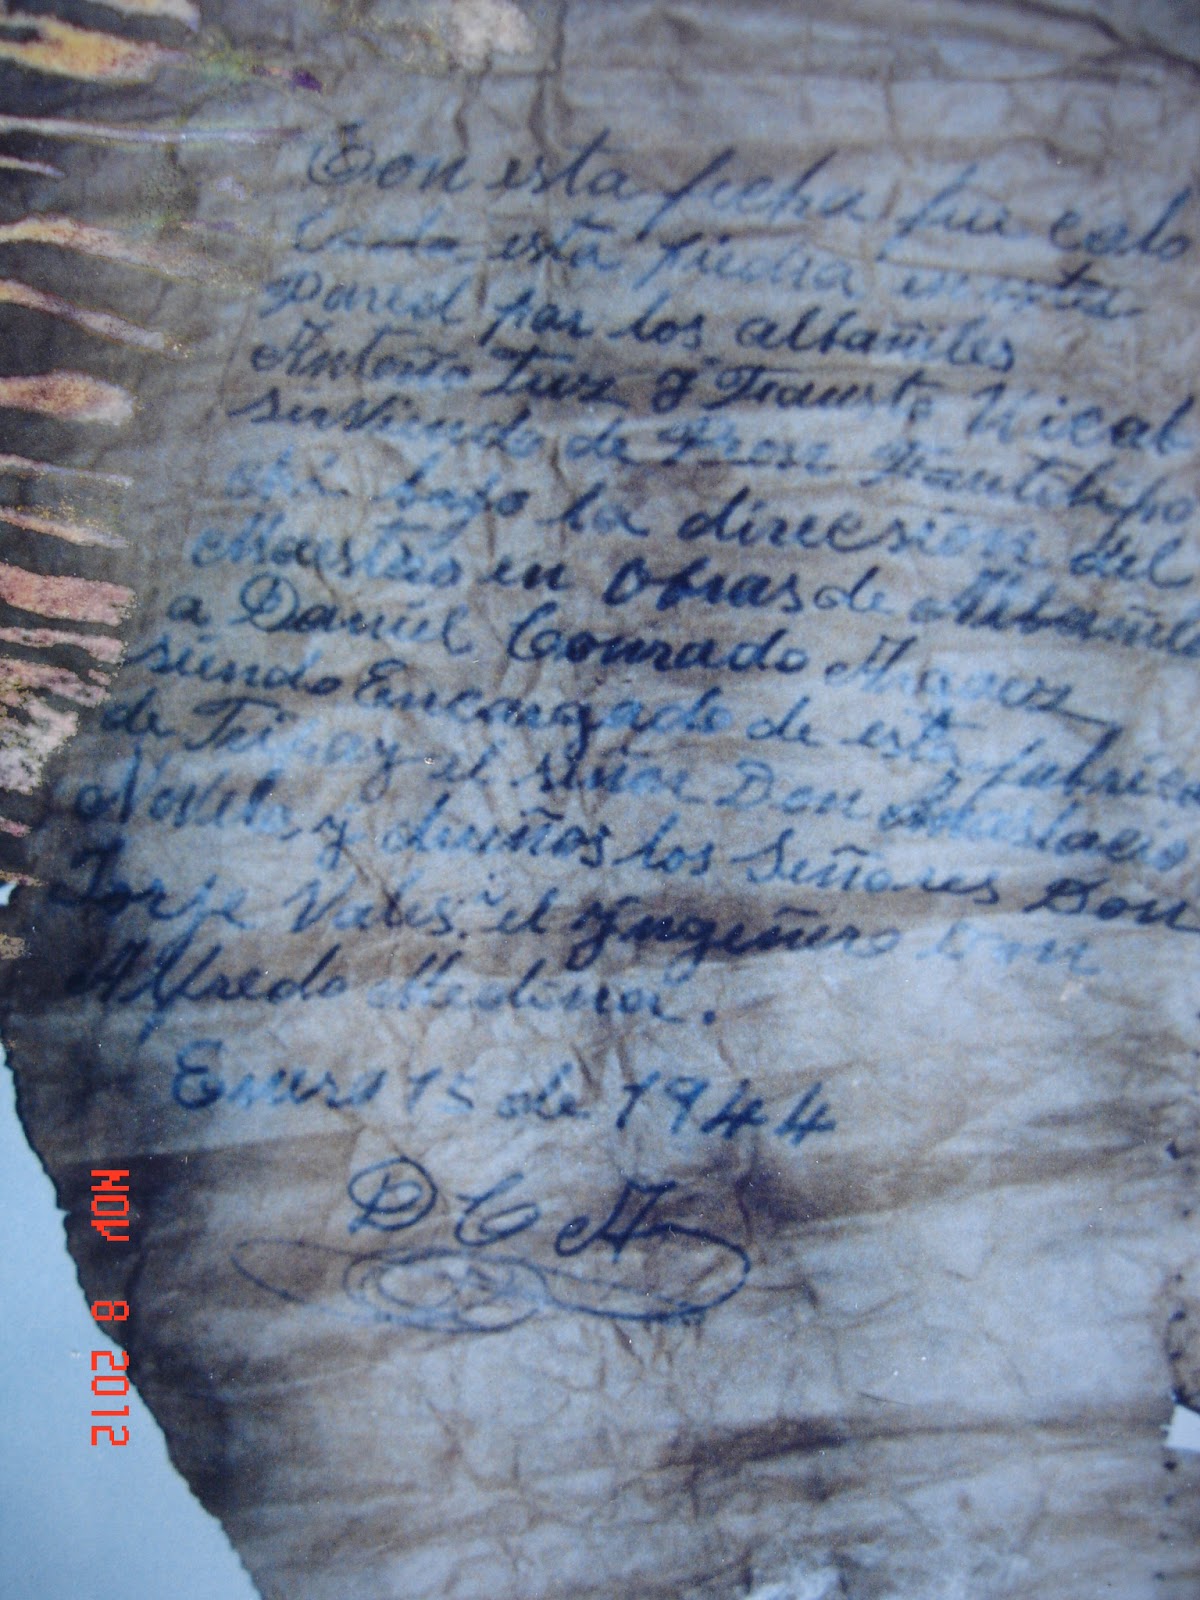 Con esta fecha fue colo
cada esta piedra en esta
Pared por los albañiles
Antoño Fuz y Frausto Uicab
serviendo de Peon
bajo la direcsion del
Maestro en Obras de Albañile
a Daniel Conrado Araoz
siendo Encargado de esta fabrica
de Tripay el señor Don Anastacio
Novelo, y dueños los Señores Don
Jorje Vales. el Yngeñero Don
Alfredo Medina.
Enero 15 de 1944
D C A
NOV 8 2012